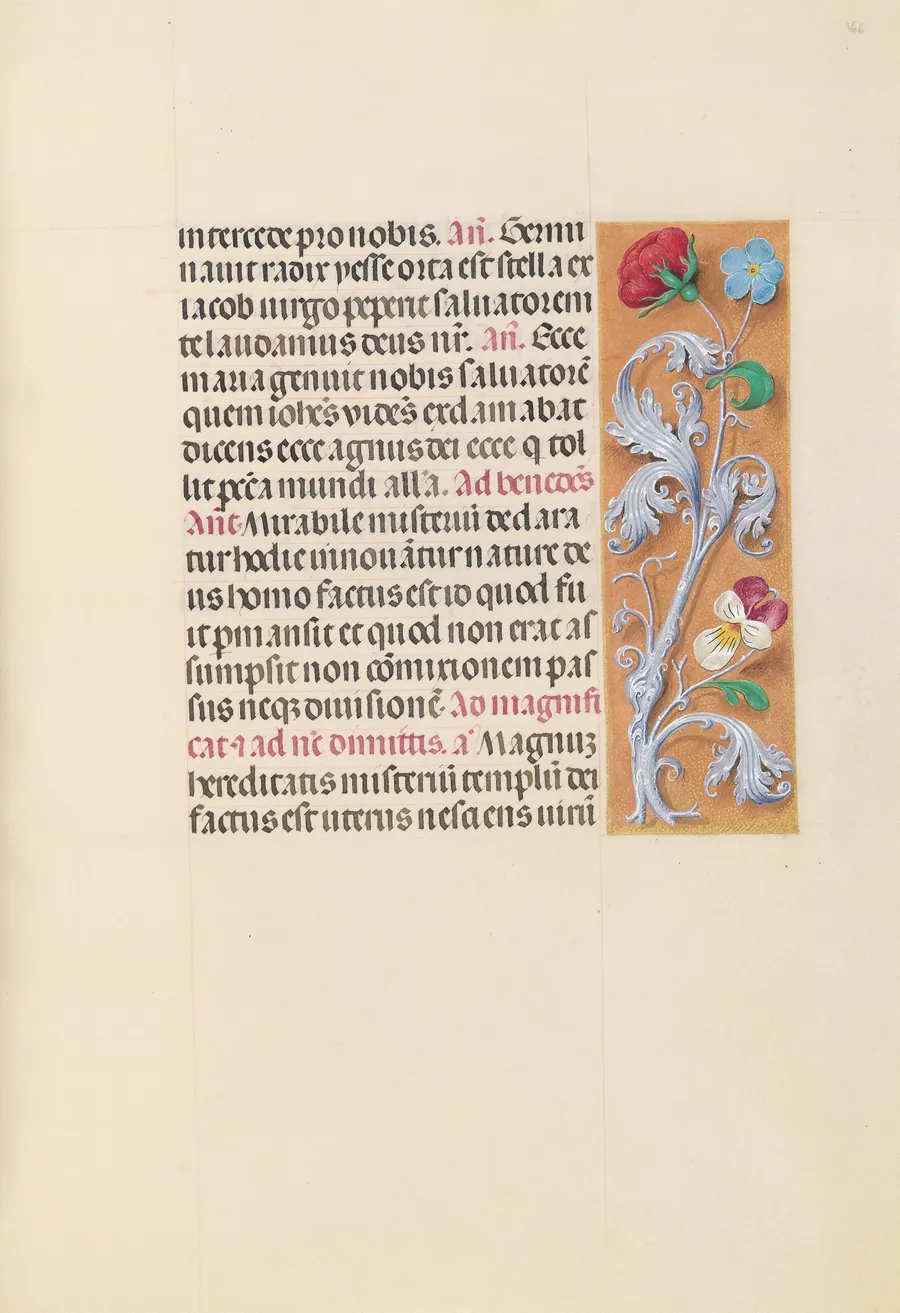 166
intercede pro nobis. Añ. Germi
nauit radix yesse orta est stella ex
iacob uirgo peperit saluatorem
te laudamus deus nr̄. Añ. Ecce
maria genuit nobis saluatorē
quem iohēs vidēs exclamabat
dicens ecce agnus dei ecce q tol
lit pc̄ca mundi all'a. Ad benedēs
Añt. Mirabile misteriū declara
tur hodie innouātur nature de
us homo factus est id quod fu
it pmansit et quod non erat as
sumpsit non cōmixtionem pas
sus neqꝫ diuisionē. Ad magnifi
cat ⁊ ad nūc dimittis. aʳ Magnuꝫ
hereditatis misteriū templū dei
factus est uterus nesciens uirū